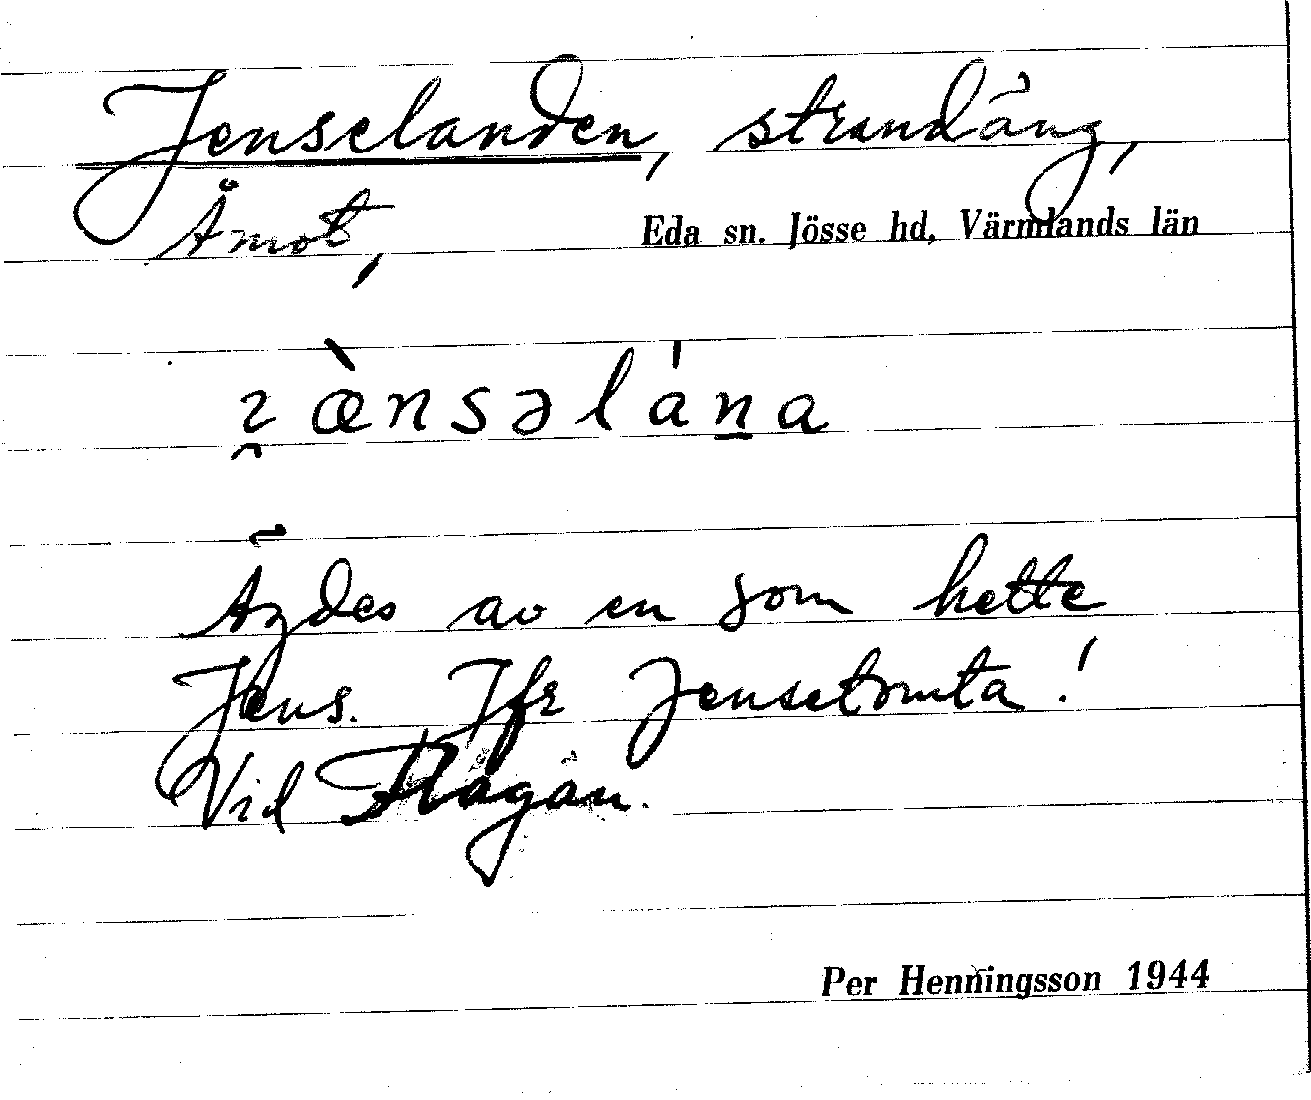 Jenselanden, strandäng,
Åmot, Eda sn. Jösse hd, Värmlands län
ı̯æ̀nsəláṉa
Ägdes av en som hette
Jens. Jfr Jensetomta!
Vid Flagån.
Per Henningsson 1944